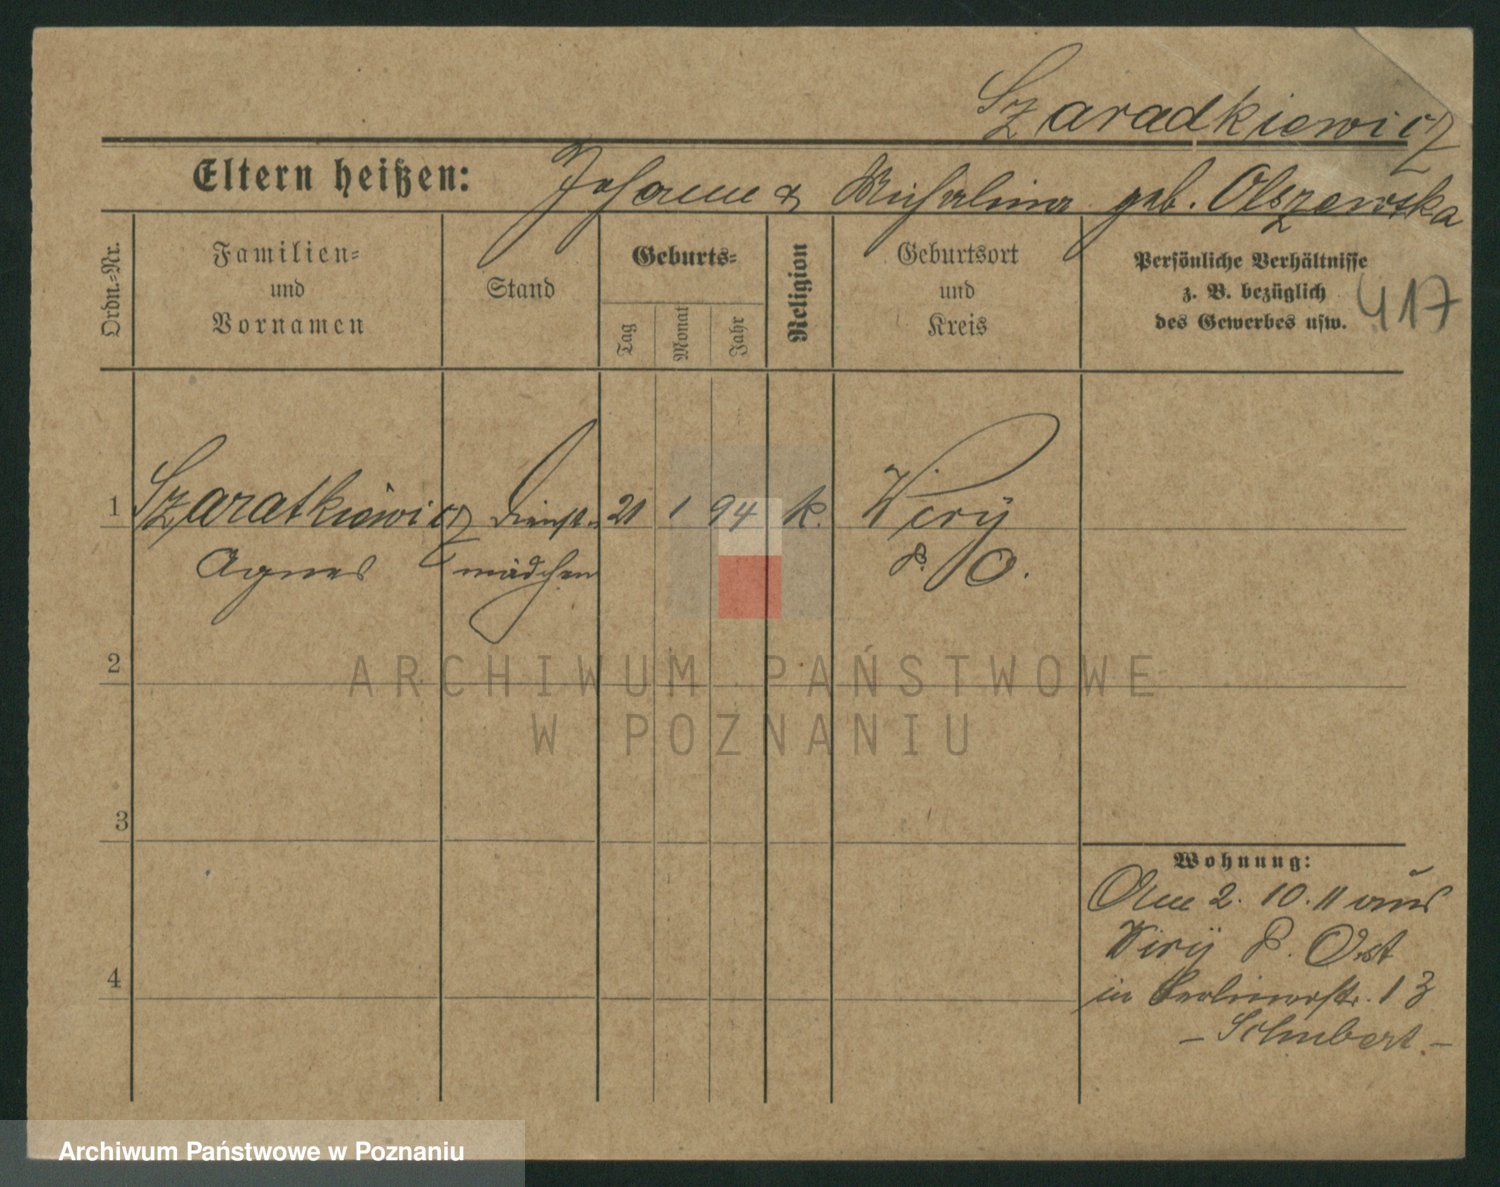 Szaradkiewicz
Eltern heißen: Johann & Michalina geb. Olszewska
Ordn.-Nr.
Familien-
und
Vornamen
Stand
Geburts-
Tag
Monat
Jahr
Religion
Geburtsort
und
Kreis
Persönliche Verhältnisse
z. B. bezüglich
des Gewerbes usw.
417
1 Szaratkiewicz Dienst- 21 1 94 k. Wiry
Agnes mädchen P. O.
2
ARCHIWUM PAŃSTWOWE
W POZNANIU
3
Wohnung:
Am 2. 10. 11 aus
Wiry P. Ost
in Berlinerstr. 13
- Schubert -
4
Archiwum Państwowe w Poznaniu